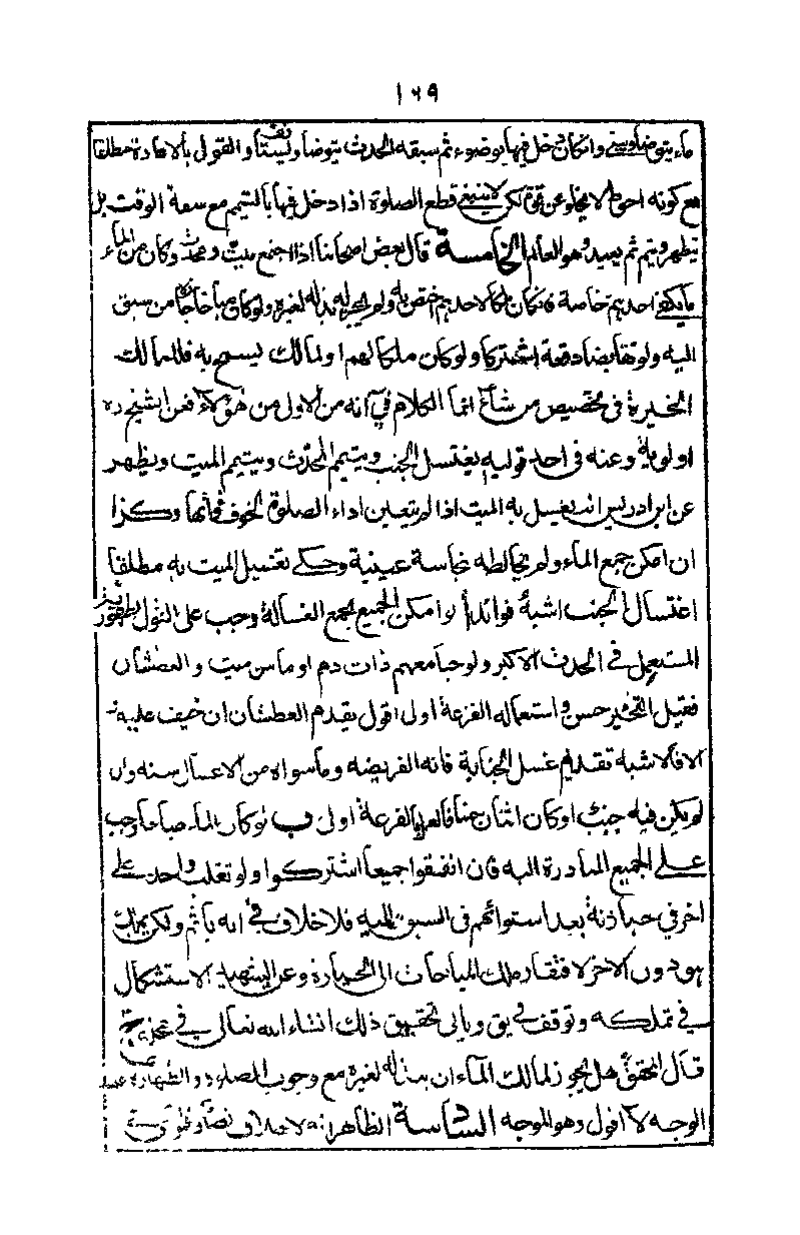 ١٦٩
ماء يتوضأ ويبنى وان كان دخل فيها بوضوء ثم سبقه الحدث يتوضأ ويبنى والقول بالاعادة مطلقا
مع كونه احوط لا يخلو عن قوة لكن لا ينبغي قطع الصلوة اذا دخل فيها بالتيمم مع سعة الوقت بل
يتطهر ويتم ثم يعيد وهو العالم الخامسة قال بعض اصحابنا اذا اجتمع ميت ومحدث وكان من الماء
ما يكفى احدهم خاصة فان كان ملكا لاحدهم اختص به ولم يجز له بذله لغيره ولو كان مباحا من سبق
اليه ولو توافيا دفعة اشتركا ولو كان ملكا لهم او لمالك يسمح به فللمالك
الخيرة في تخصيص من شاء انما الكلام في انه من الاولى من هؤلاء فعن الشيخ ره
اولوية وعنه في احد قوليه يغتسل الجنب ويتيمم المحدث وييمم الميت ويظهر
عن ابن ادريس انه يغسل به الميت اذا لم يتعين اداء الصلوة لخوف فواتها وكذا
ان امكن جمع الماء ولم يخالطه نجاسة عينية وحكى تغسيل الميت به مطلقا
اغتسال الجنب اشبه فوائد ا لو امكن الجميع بجمع الغسالة وجب على القول بطهورية
المستعمل في الحدث الاكبر ولو جامعهم ذات دم او ماس ميت والعطشان
فقيل التخيير حسن واستعماله القرعة اولى اقول يقدم العطشان ان خيف عليه
الا فالاشبه تقديم غسل الجنابة فانه الفريضه وما سواه من الاغسال سنه وان
لم يكن فيه جنب او كان اثنان جنبا فالعمل بالقرعة اولى ب لو كان الماء مباحا وجب
على الجميع المبادرة اليه فان اتفقوا جميعا اشتركوا ولو تغلب واحد على
اخر في حيازته بعد استوائهم في السبق اليه فلا خلاف في انه يأثم ولكن يملك
هو دون الاخر لافتقار ملك المباحات الى الحيازة وعن الشهيد الاستشكال
في تملكه وتوقف في يق وياتى تحقيق ذلك انشاء الله تعالى في محله ج
قال المحقق هل يجوز لمالك الماء ان يبذله لغيره مع وجوب الصلوة والطهارة عليه
الوجه لا اقول وهو الموجه السادسة الظاهر انه لا خلاف نصا وفتوى